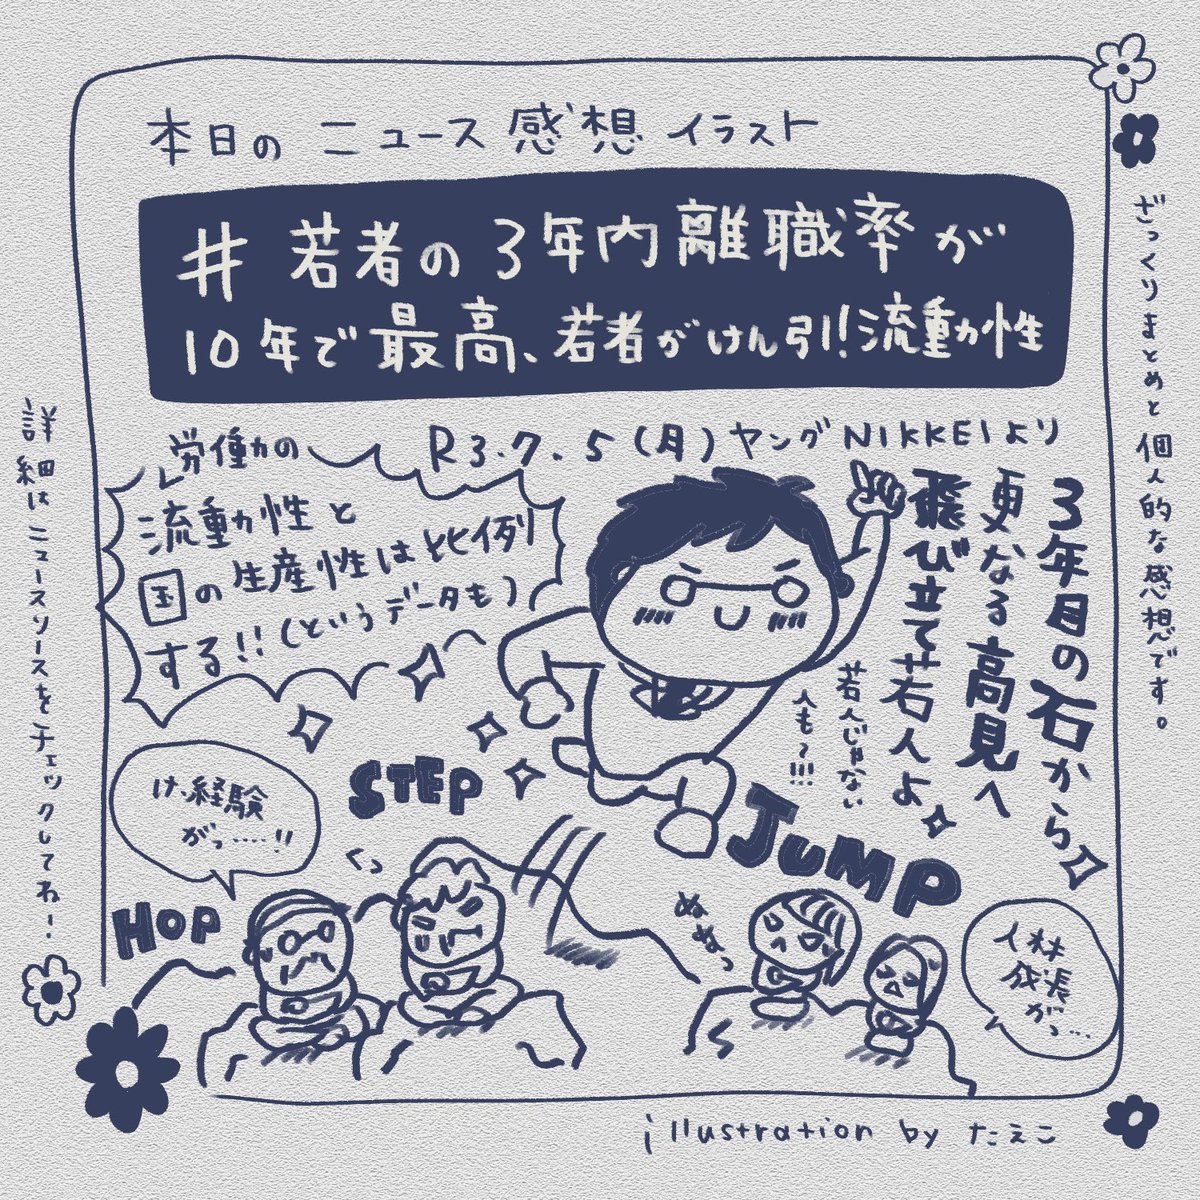 本日のニュース感想イラスト
#若者の3年内離職率が
10年で最高、若者がけん引!流動性
R3.7.5(月)ヤングNIKKEIより
労働力の
流動性と
国の生産性は比例
する!!(というデータも)
3年目の石から
更なる高見へ
飛び立て若人よ
若人じゃない
人も〜!!!
け、経験
がっ……!!
くっ
HOP
STEP
JUMP
ぬぬっ
人材
成長
がっ…
ざっくりまとめと個人的な感想です。
詳細はニュースソースをチェックしてね！
illustration by たえこ